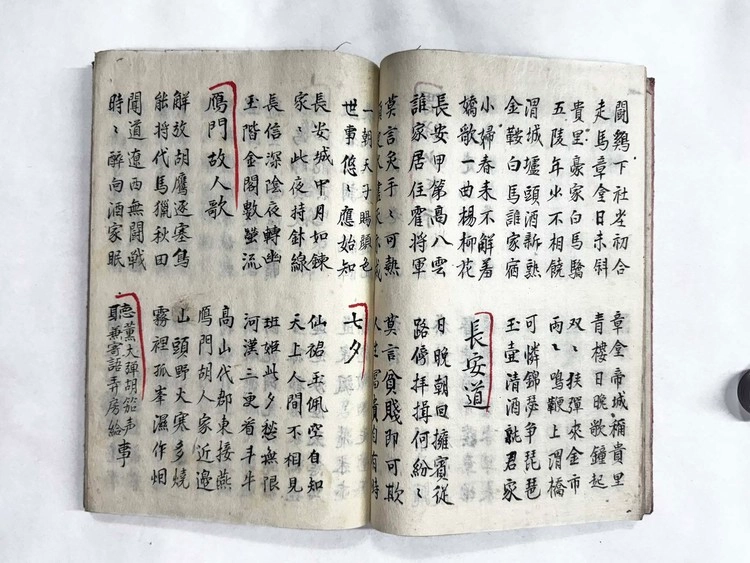 鬪鷄下社坌初合
走馬章臺日未斜
章臺帝城稱貴里
青樓日晚歌鐘起
貴里豪家白馬驕
五陵年少不相饒
双〻挾彈來金市
兩〻鳴鞭上渭橋
渭城壚頭酒新熟
金鞍白馬誰家宿
可憐錦瑟争琵琶
玉壺清酒就君家
小婦春来不解羞
嬌歌一曲楊柳花
長安道
長安甲第高入雲
誰家居住霍將軍
日晚朝回擁賓從
路傍拜揖何紛〻
莫言炙手〻可熱
莫言貧賤即可欺
人生富貴自有時
一朝天子賜顏色
世事悠〻應始知
七夕
長安城中月如練
家〻此夜持針線
仙裙玉佩空自知
天上人間不相見
長信深陰夜轉幽
玉階金閣數螢流
班姬此夕愁無限
河漢三更看斗牛
鴈門故人歌
高山代郡東接燕
鴈門胡人家近邊
解放胡鷹逐塞鳥
能將代馬獵秋田
山頭野火寒多燒
霧裡孤峯濕作烟
聞道遼西無鬪戰
時〻醉向酒家眠
聽董大彈胡笳声
兼寄語弄房給事